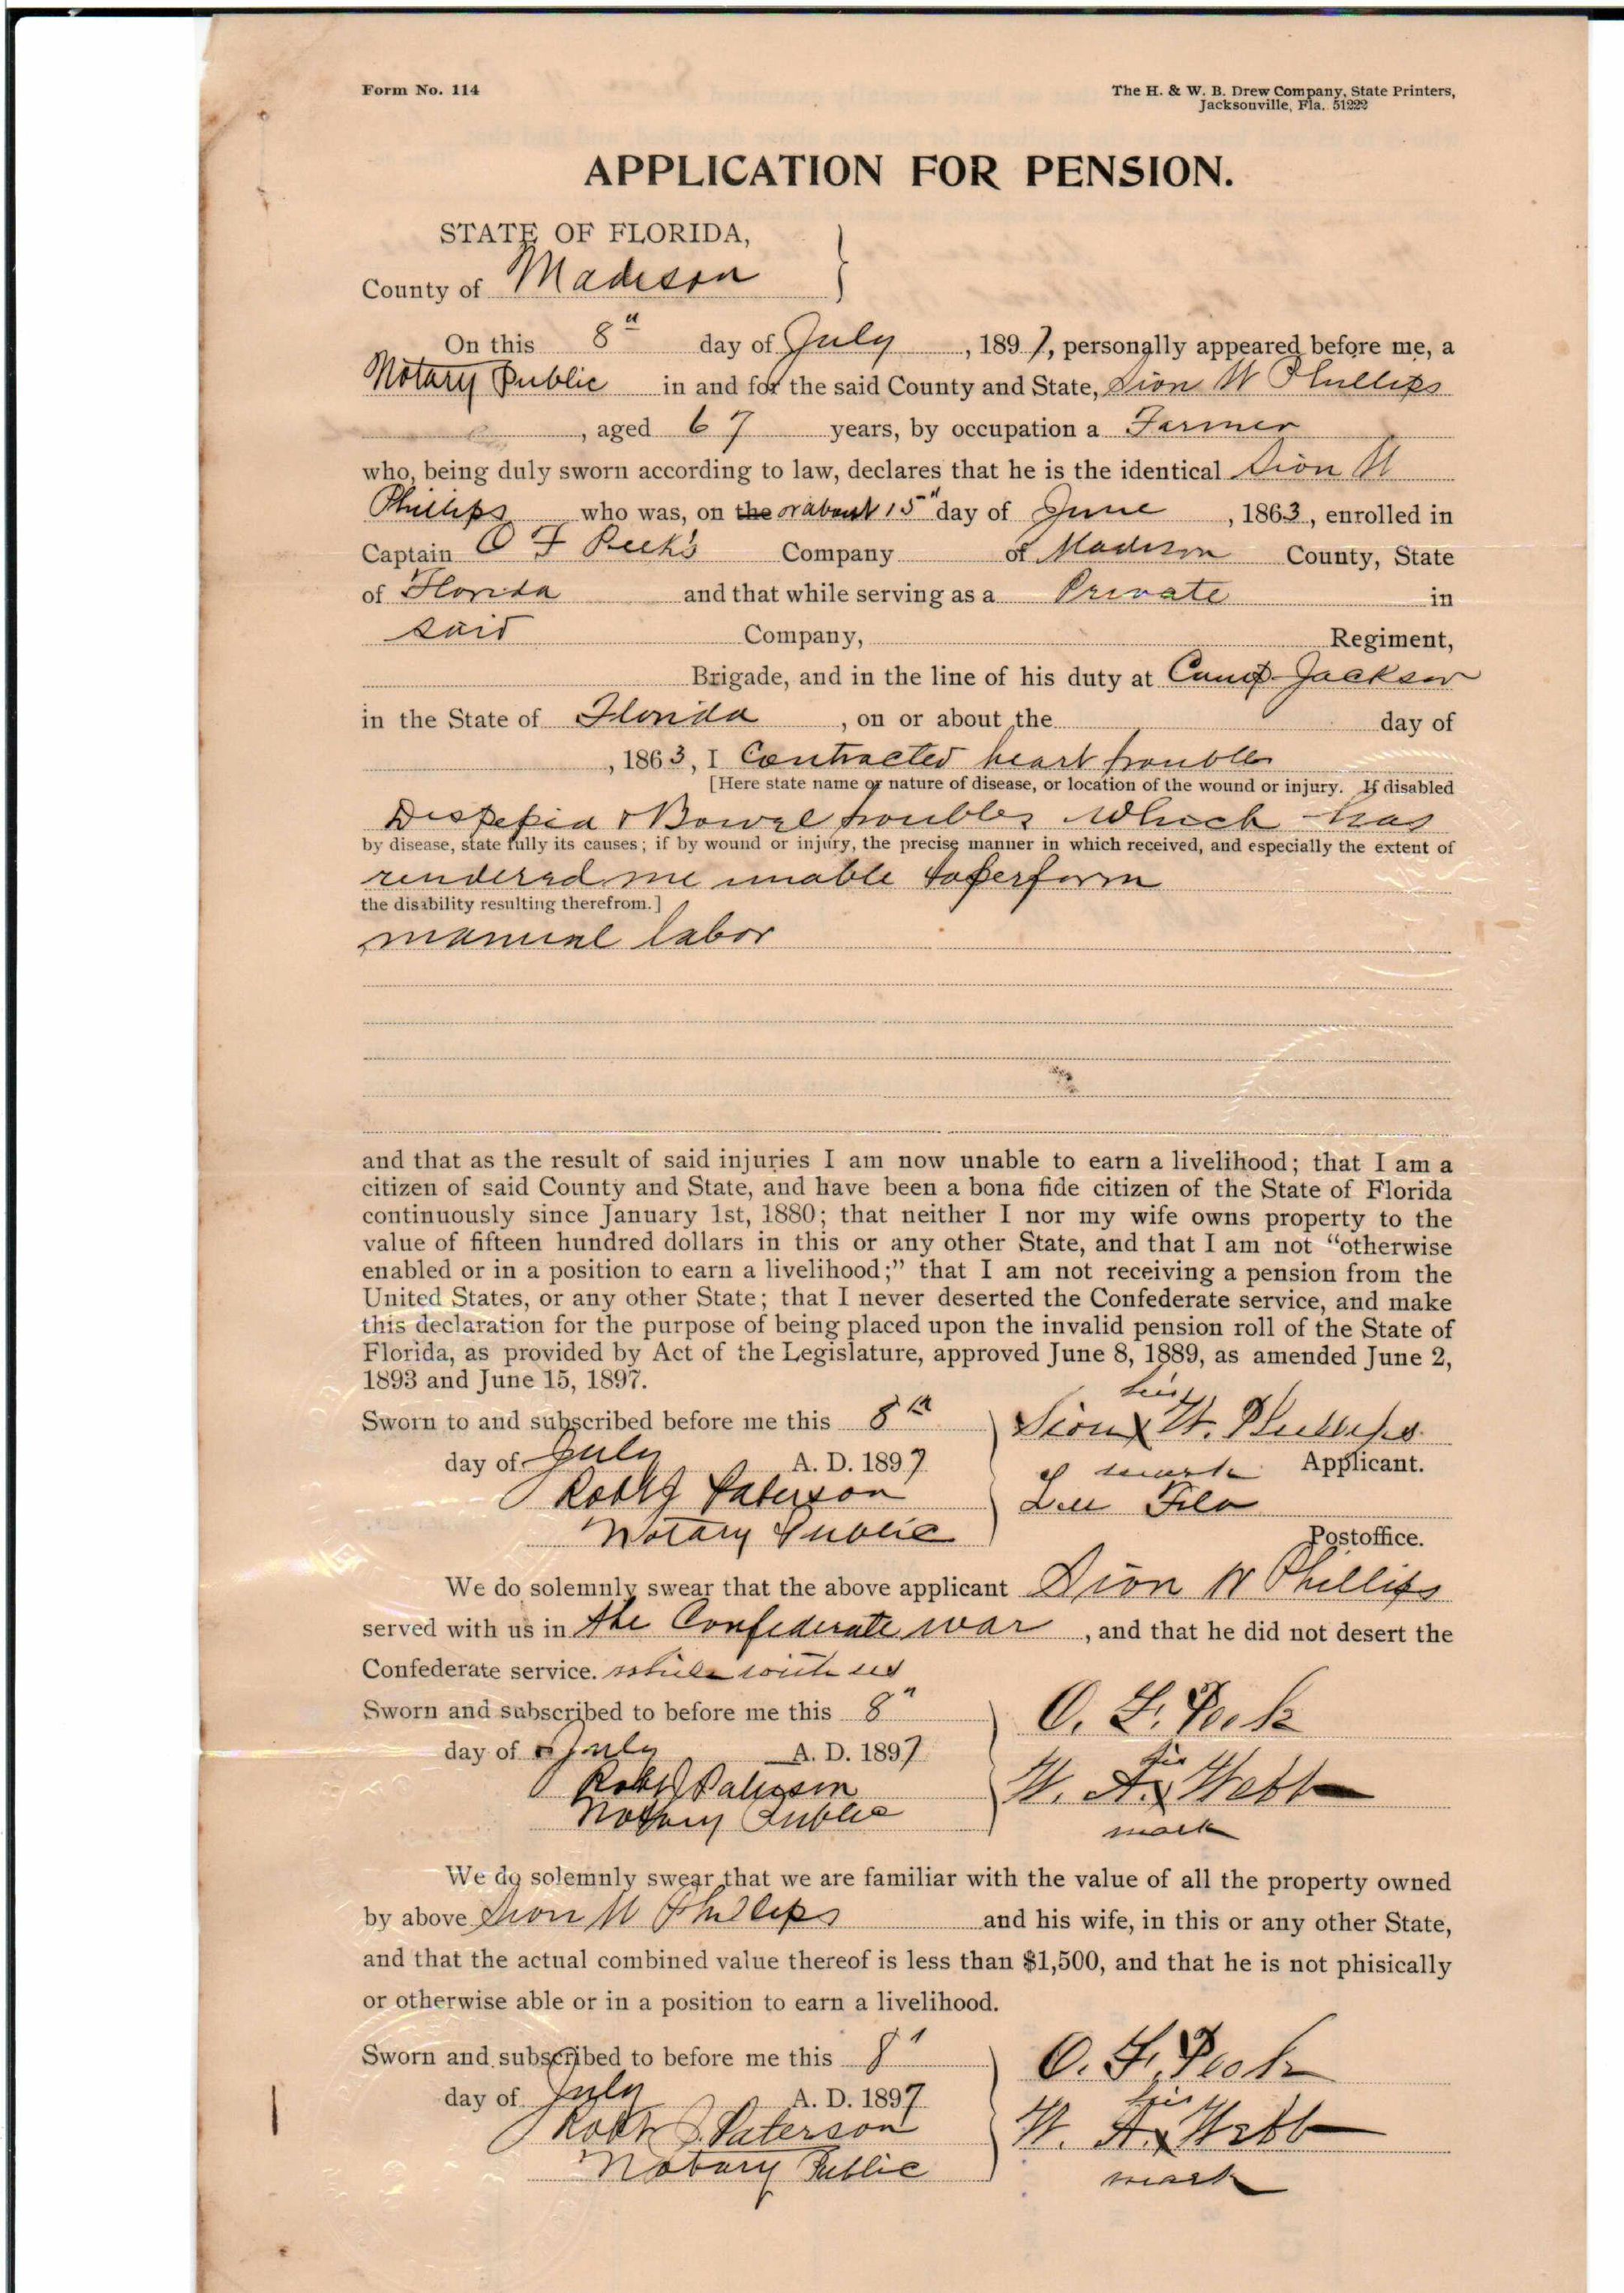 Form No. 114
The H. & W. B. Drew Company, State Printers,
Jacksonville, Fla. 51222
APPLICATION FOR PENSION.
STATE OF FLORIDA,
County of Madison
On this 8" day of July, 1897, personally appeared before me, a
Notary Public in and for the said County and State, Sion W Phillips
, aged 67 years, by occupation a Farmer
who, being duly sworn according to law, declares that he is the identical Sion W
Phillips who was, on the or about 15" day of June, 1863, enrolled in
Captain O F Peek's Company of Madison County, State
of Florida and that while serving as a Private in
said Company, Regiment,
Brigade, and in the line of his duty at Camp Jackson
in the State of Florida, on or about the day of
, 1863, I Contracted heart troubles
[Here state name or nature of disease, or location of the wound or injury. If disabled
Dispepia & Bowel troubles which has
by disease, state fully its causes; if by wound or injury, the precise manner in which received, and especially the extent of
rendered me unable to perform
the disability resulting therefrom.]
manual labor
and that as the result of said injuries I am now unable to earn a livelihood; that I am a
citizen of said County and State, and have been a bona fide citizen of the State of Florida
continuously since January 1st, 1880; that neither I nor my wife owns property to the
value of fifteen hundred dollars in this or any other State, and that I am not “otherwise
enabled or in a position to earn a livelihood;” that I am not receiving a pension from the
United States, or any other State; that I never deserted the Confederate service, and make
this declaration for the purpose of being placed upon the invalid pension roll of the State of
Florida, as provided by Act of the Legislature, approved June 8, 1889, as amended June 2,
1893 and June 15, 1897.
his
Sworn to and subscribed before me this 8th Sion X W. Phillips
day of July A. D. 1897 mark Applicant.
Robt J Paterson Lee Fla
Notary Public Postoffice.
We do solemnly swear that the above applicant Sion W Phillips
served with us in the Confederate war, and that he did not desert the
Confederate service. while with us
Sworn and subscribed to before me this 8" O. F. Peek
day of July A. D. 1897 his
Robt J Paterson W. A. X Webb
Notary Public mark
We do solemnly swear that we are familiar with the value of all the property owned
by above Sion W Phillips and his wife, in this or any other State,
and that the actual combined value thereof is less than $1,500, and that he is not phisically
or otherwise able or in a position to earn a livelihood.
Sworn and subscribed to before me this 8" O. F. Peek
day of July A. D. 1897 his
Robt J. Paterson W. A. X Webb
Notary Public mark